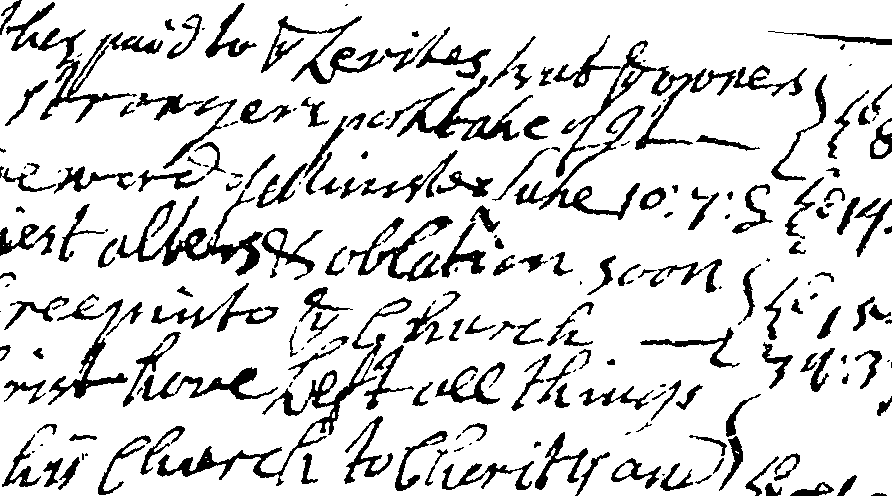 they paid to ye Levites, but ye poor &
strangers partake of It
reward of Minister Luke 10:7:8 14
iest alters & oblation soon
creep into ye Church 15
rist have Left all things 34:3
his Church to Cherity and